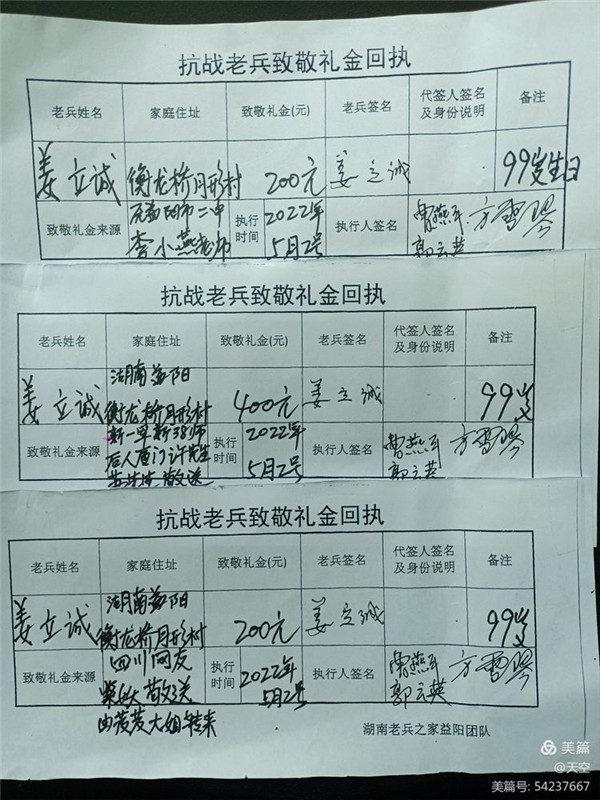 抗战老兵致敬礼金回执
老兵姓名 家庭住址 致敬礼金(元) 老兵签名 代签人签名及身份说明 备注
姜立诚 衡龙桥月形村 200元 姜立诚 99岁生日
致敬礼金来源 益阳市二中 李小燕老师 执行时间 2022年5月2号 执行人签名 曹燕平 方雪琴 郭云英
抗战老兵致敬礼金回执
老兵姓名 家庭住址 致敬礼金(元) 老兵签名 代签人签名及身份说明 备注
姜立诚 湖南益阳衡龙桥月形村 400元 姜立诚 99岁
致敬礼金来源 新一军新38师后人厦门许 敬送 执行时间 2022年5月2号 执行人签名 曹燕平 方雪琴 郭云英
抗战老兵致敬礼金回执
老兵姓名 家庭住址 致敬礼金(元) 老兵签名 代签人签名及身份说明 备注
姜立诚 湖南益阳衡龙桥月形村 200元 姜立诚 99岁
致敬礼金来源 四川网友 敬送 执行时间 2022年5月2号 执行人签名 曹燕平 方雪琴 郭云英
由黄莫大姐转来
湖南老兵之家益阳团队
美篇
@天空
美篇号: 54237667